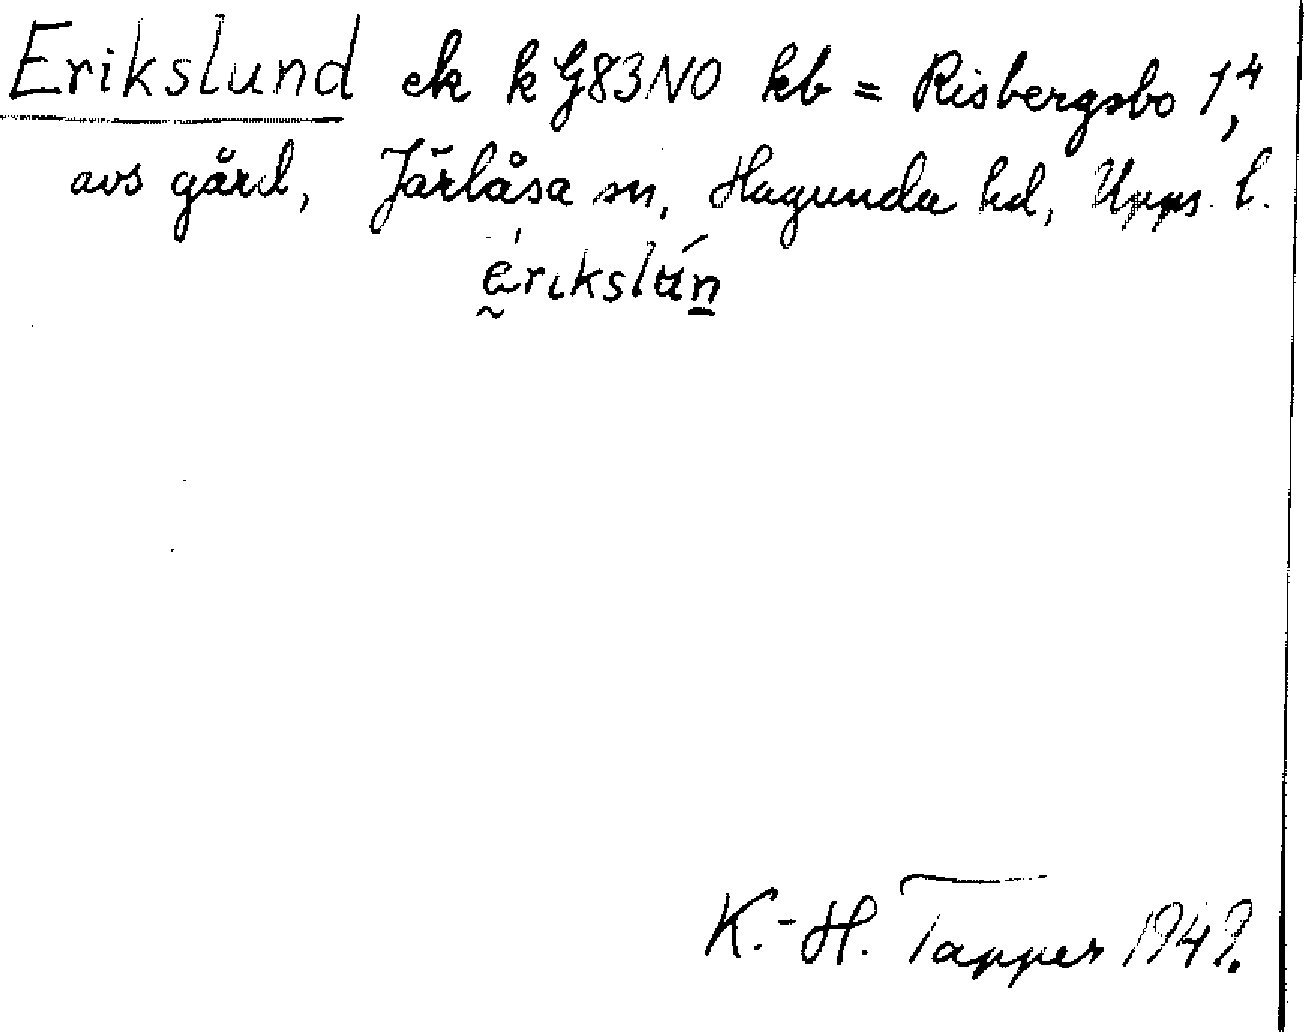 Erikslund ek k G83NO kb = Risbergsbo 1⁴,
avs gård, Järlåsa sn, Hagunda hd, Upps. l.
érikslún
K.-H. Tapper 1949.